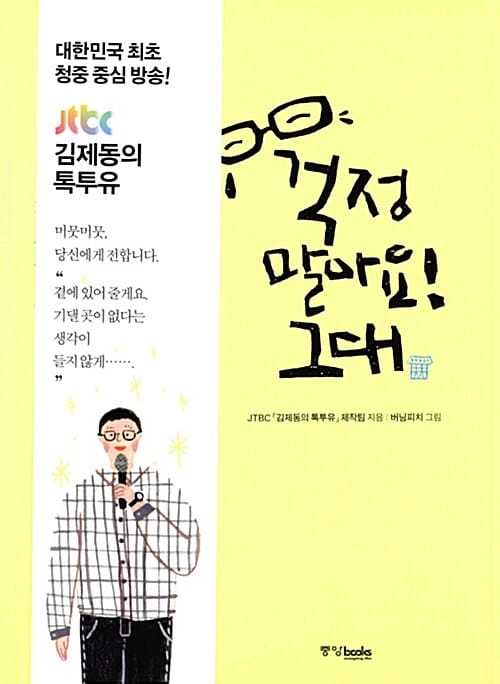 대한민국 최초
청중 중심 방송!
jtbc
김제동의
톡투유
머뭇머뭇,
당신에게 전합니다.
“
곁에 있어 줄게요.
기댈 곳이 없다는
생각이
들지 않게…….
”
걱정
말아요!
그대
JTBC 「김제동의 톡투유」 제작팀 지음 | 버닝피치 그림
중앙books